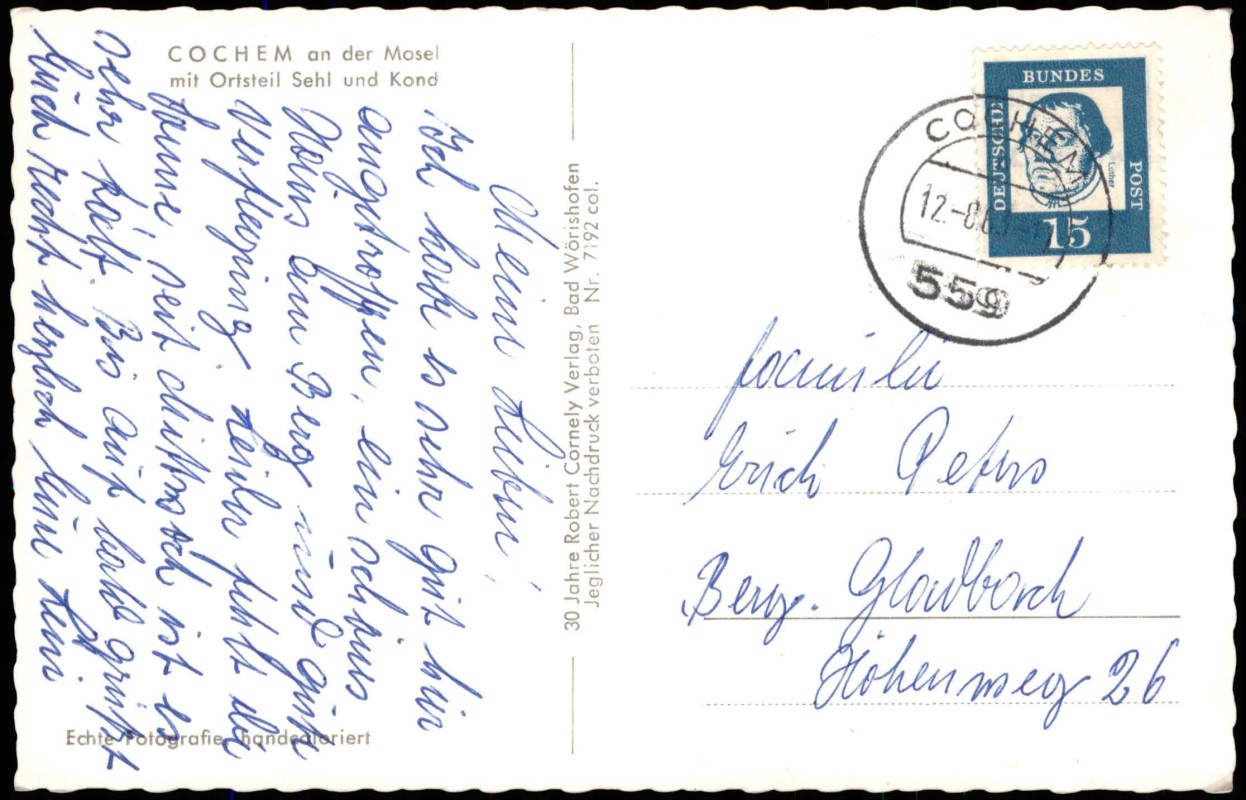 COCHEM an der Mosel
mit Ortsteil Sehl und Kond
Meine Lieben!
Ich habe es sehr gut hier
angetroffen, ein schönes
Haus am Berg und gute
Verpflegung. Leider fehlt die
Sonne seit Mittwoch ist es
sehr kalt. Bis auf bald grüßt
Euch recht herzlich Eure Leni
Echte Fotografie, handcoloriert
30 Jahre Robert Cornely Verlag, Bad Wörishofen
Jeglicher Nachdruck verboten Nr. 7192 col.
DEUTSCHE
BUNDES
POST
Luther
15
COCHEM
12.-8.63
559
Familie
Erich Peters
Berg. Gladbach
Höhenweg 26